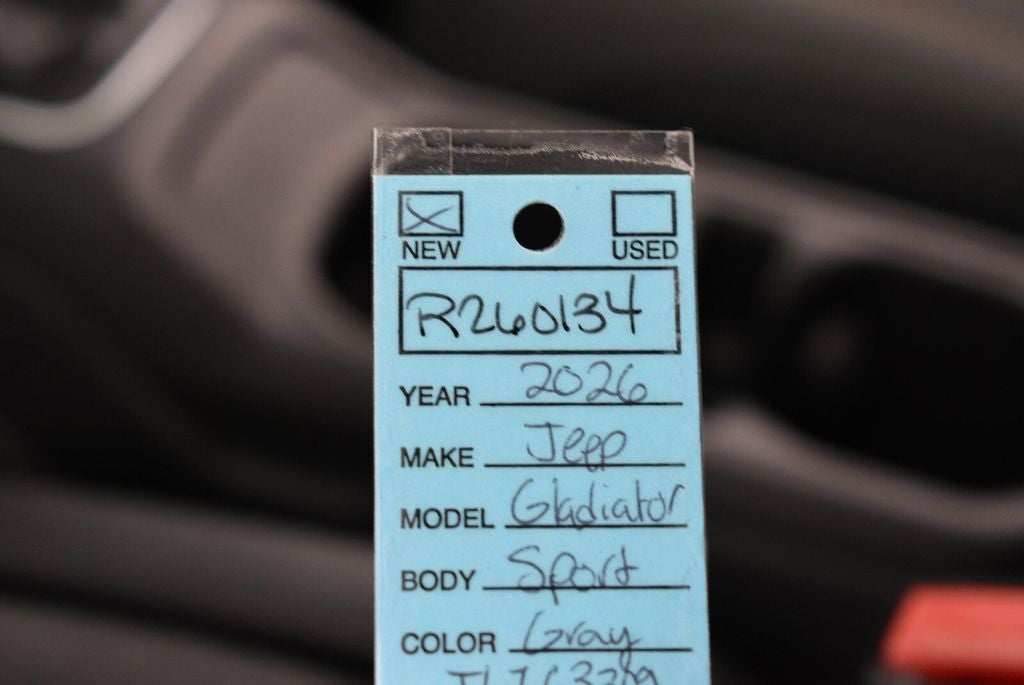 NEW USED
R260134
YEAR 2026
MAKE Jeep
MODEL Gladiator
BODY Sport
COLOR Gray